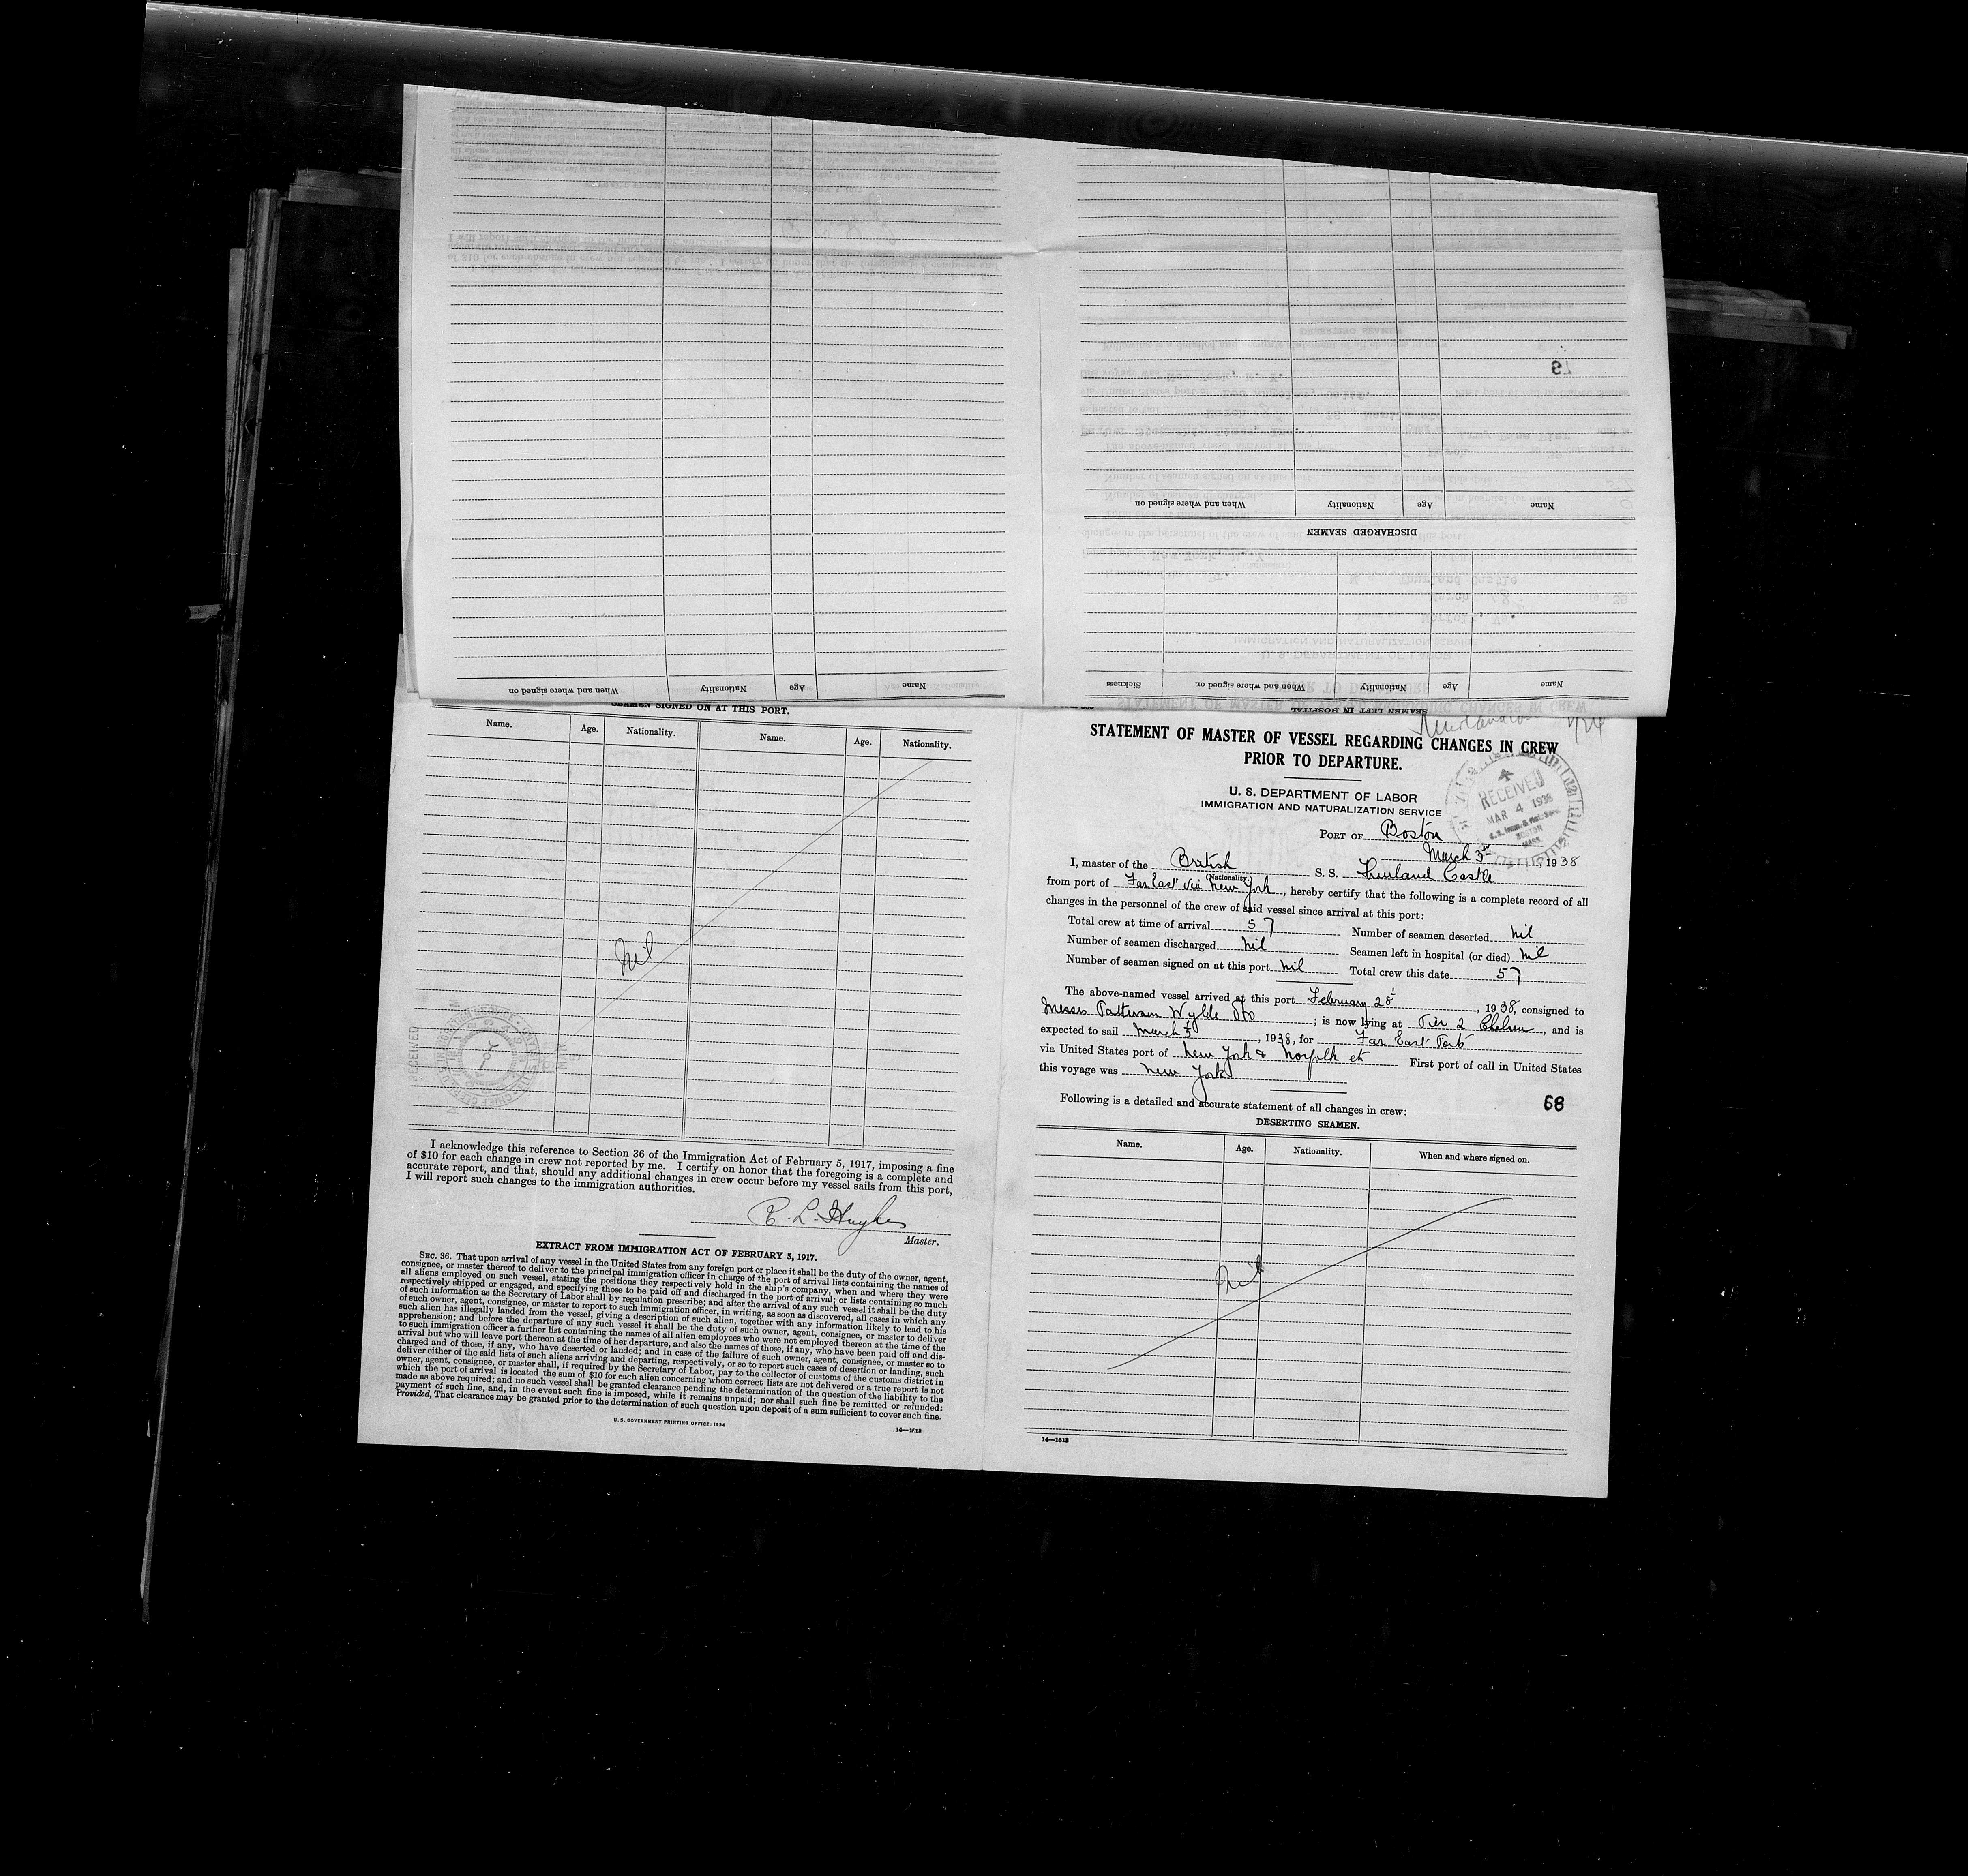 Sickness
When and where signed on
Nationality
Age
Name
When and where signed or.
Nationality
Age
Name
SEAMEN LEFT IN HOSPITAL
DISCHARGED SEAMEN
When and where signed on
Nationality
Age
Name
SEAMEN SIGNED ON AT THIS PORT.
Name. Age. Nationality. Name. Age. Nationality.
nil
RECEIVED
I acknowledge this reference to Section 36 of the Immigration Act of February 5, 1917, imposing a fine
of $10 for each change in crew not reported by me. I certify on honor that the foregoing is a complete and
accurate report, and that, should any additional changes in crew occur before my vessel sails from this port,
I will report such changes to the immigration authorities.
R. L. Hughes
Master.
EXTRACT FROM IMMIGRATION ACT OF FEBRUARY 5, 1917.
SEC. 36. That upon arrival of any vessel in the United States from any foreign port or place it shall be the duty of the owner, agent,
consignee, or master thereof to deliver to the principal immigration officer in charge of the port of arrival lists containing the names of
all aliens employed on such vessel, stating the positions they respectively hold in the ship's company, when and where they were
respectively shipped or engaged, and specifying those to be paid off and discharged in the port of arrival; or lists containing so much
of such information as the Secretary of Labor shall by regulation prescribe; and after the arrival of any such vessel it shall be the duty
of such owner, agent, consignee, or master to report to such immigration officer, in writing, as soon as discovered, all cases in which any
such alien has illegally landed from the vessel, giving a description of such alien, together with any information likely to lead to his
apprehension; and before the departure of any such vessel it shall be the duty of such owner, agent, consignee, or master to deliver
to such immigration officer a further list containing the names of all alien employees who were not employed thereon at the time of the
arrival but who will leave port thereon at the time of her departure, and also the names of those, if any, who have been paid off and dis-
charged and of those, if any, who have deserted or landed; and in case of the failure of such owner, agent, consignee, or master so to
deliver either of the said lists of such aliens arriving and departing, respectively, or so to report such cases of desertion or landing, such
owner, agent, consignee, or master shall, if required by the Secretary of Labor, pay to the collector of customs of the customs district in
which the port of arrival is located the sum of $10 for each alien concerning whom correct lists are not delivered or a true report is not
made as above required; and no such vessel shall be granted clearance pending the determination of the question of the liability to the
payment of such fine, and, in the event such fine is imposed, while it remains unpaid; nor shall such fine be remitted or refunded:
Provided, That clearance may be granted prior to the determination of such question upon deposit of a sum sufficient to cover such fine.
U. S. GOVERNMENT PRINTING OFFICE: 1934
14—1613
STATEMENT OF MASTER OF VESSEL REGARDING CHANGES IN CREW
PRIOR TO DEPARTURE.
U. S. DEPARTMENT OF LABOR
IMMIGRATION AND NATURALIZATION SERVICE
RECEIVED
MAR 4 1938
BOSTON
MASS.
PORT OF Boston
March 3rd, 1938
I, master of the British S. S. Thurland Castle
(Nationality)
from port of Far East via New York, hereby certify that the following is a complete record of all
changes in the personnel of the crew of said vessel since arrival at this port:
Total crew at time of arrival 57 Number of seamen deserted nil
Number of seamen discharged nil Seamen left in hospital (or died) nil
Number of seamen signed on at this port nil Total crew this date 57
The above-named vessel arrived at this port February 28, 1938, consigned to
Messrs Patterson Wylde & Co; is now lying at Pier 2 Chelsea, and is
expected to sail March, 1938, for Far East Ports
via United States port of New York & Norfolk etc First port of call in United States
this voyage was New York
Following is a detailed and accurate statement of all changes in crew:
68
DESERTING SEAMEN.
Name. Age. Nationality. When and where signed on.
nil
14—1613